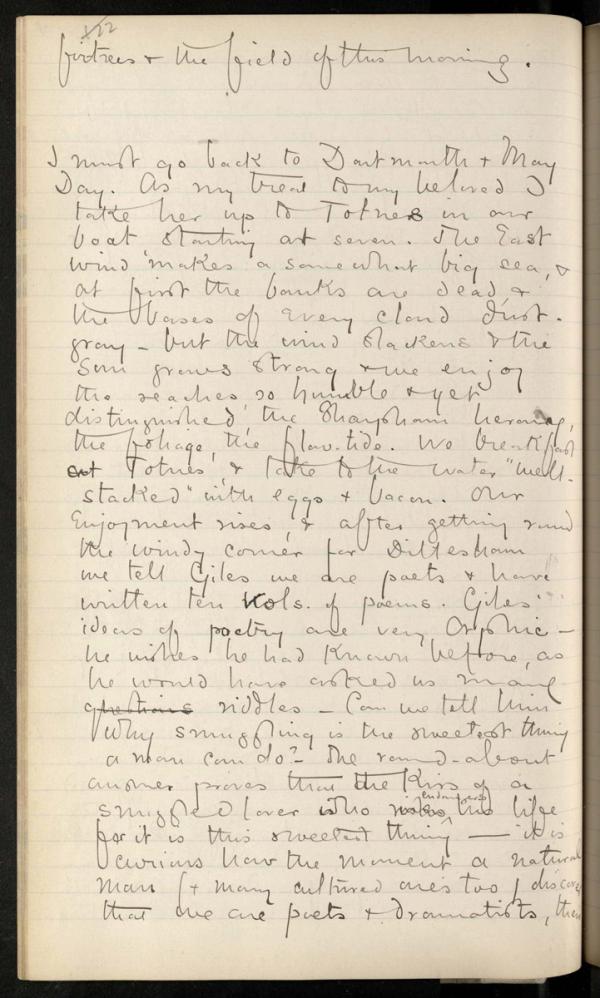 122
firtrees & the field of this morning.
I must go back to Dartmouth & May
Day. As my treat to my beloved I
take her up to Totnes in our
boat starting at seven. The East
wind makes a somewhat big sea, &
at first the banks are dead, &
the bases of every cloud dust-
gray – but the wind slackens & the
sun grows strong & we enjoy
the reaches so humble & yet
distinguished, the Sharpham heronry,
the foliage, the flow-tide. We breakfast
at Totnes, & take to the water "well-
stacked" with eggs & bacon. Our
enjoyment rises, & after getting round
the windy corner for Dittesham
we tell Giles we are poets & have
written ten vols. of poems. Giles'
ideas of poetry are very Orphic –
he wishes he had known before, as
he would have asked us many
questions riddles – Can we tell him
why smuggling is the sweetest thing
a man can do? – The round-about
answer proves that the Kiss of a
smuggled lover who risks endangers his life
for it is this sweetest thing — it is
curious how the moment a natural
man (& many cultured ones too) discover
that we are poets & dramatists, then